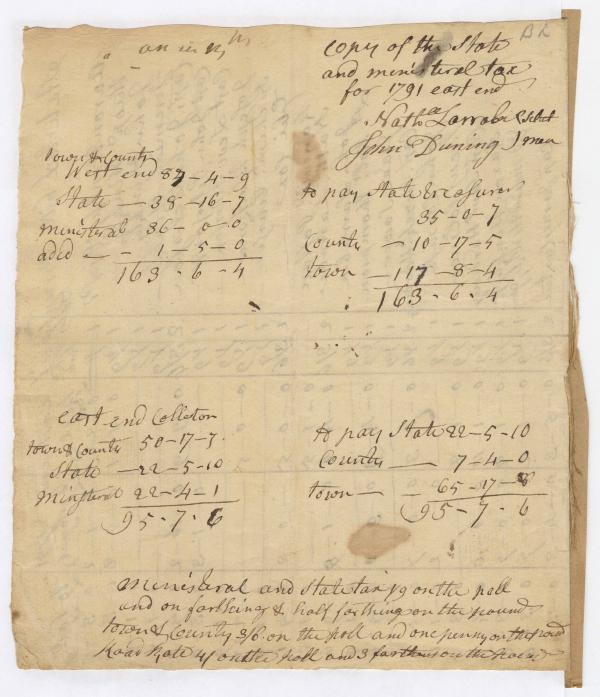 BL
copy of the State
and ministeral tax
for 1791 east end
Nathll Larrabe Select
John Duning } men
town & County
West end 87-4-9
State — 38-16-7
ministeral 36-0-0
aded — - 1-5-0
163-6-4
to pay State treasurer
35-0-7
County — 10-17-5
town — 117-8-4
163-6-4
east end Colleton
town & County 50-17-7
State — 22-5-10
Ministeral 22-4-1
95-7-6
to pay State 22-5-10
County — 7-4-0
town — - 65-17-8
95-7-6
ministeral and State tax 1/9 on the poll
and on farthing & half farthing on the pound
town & County 3/6 on the poll and one penny on the pound
Road Rate 4/ on the poll and 3 farthens on the pound